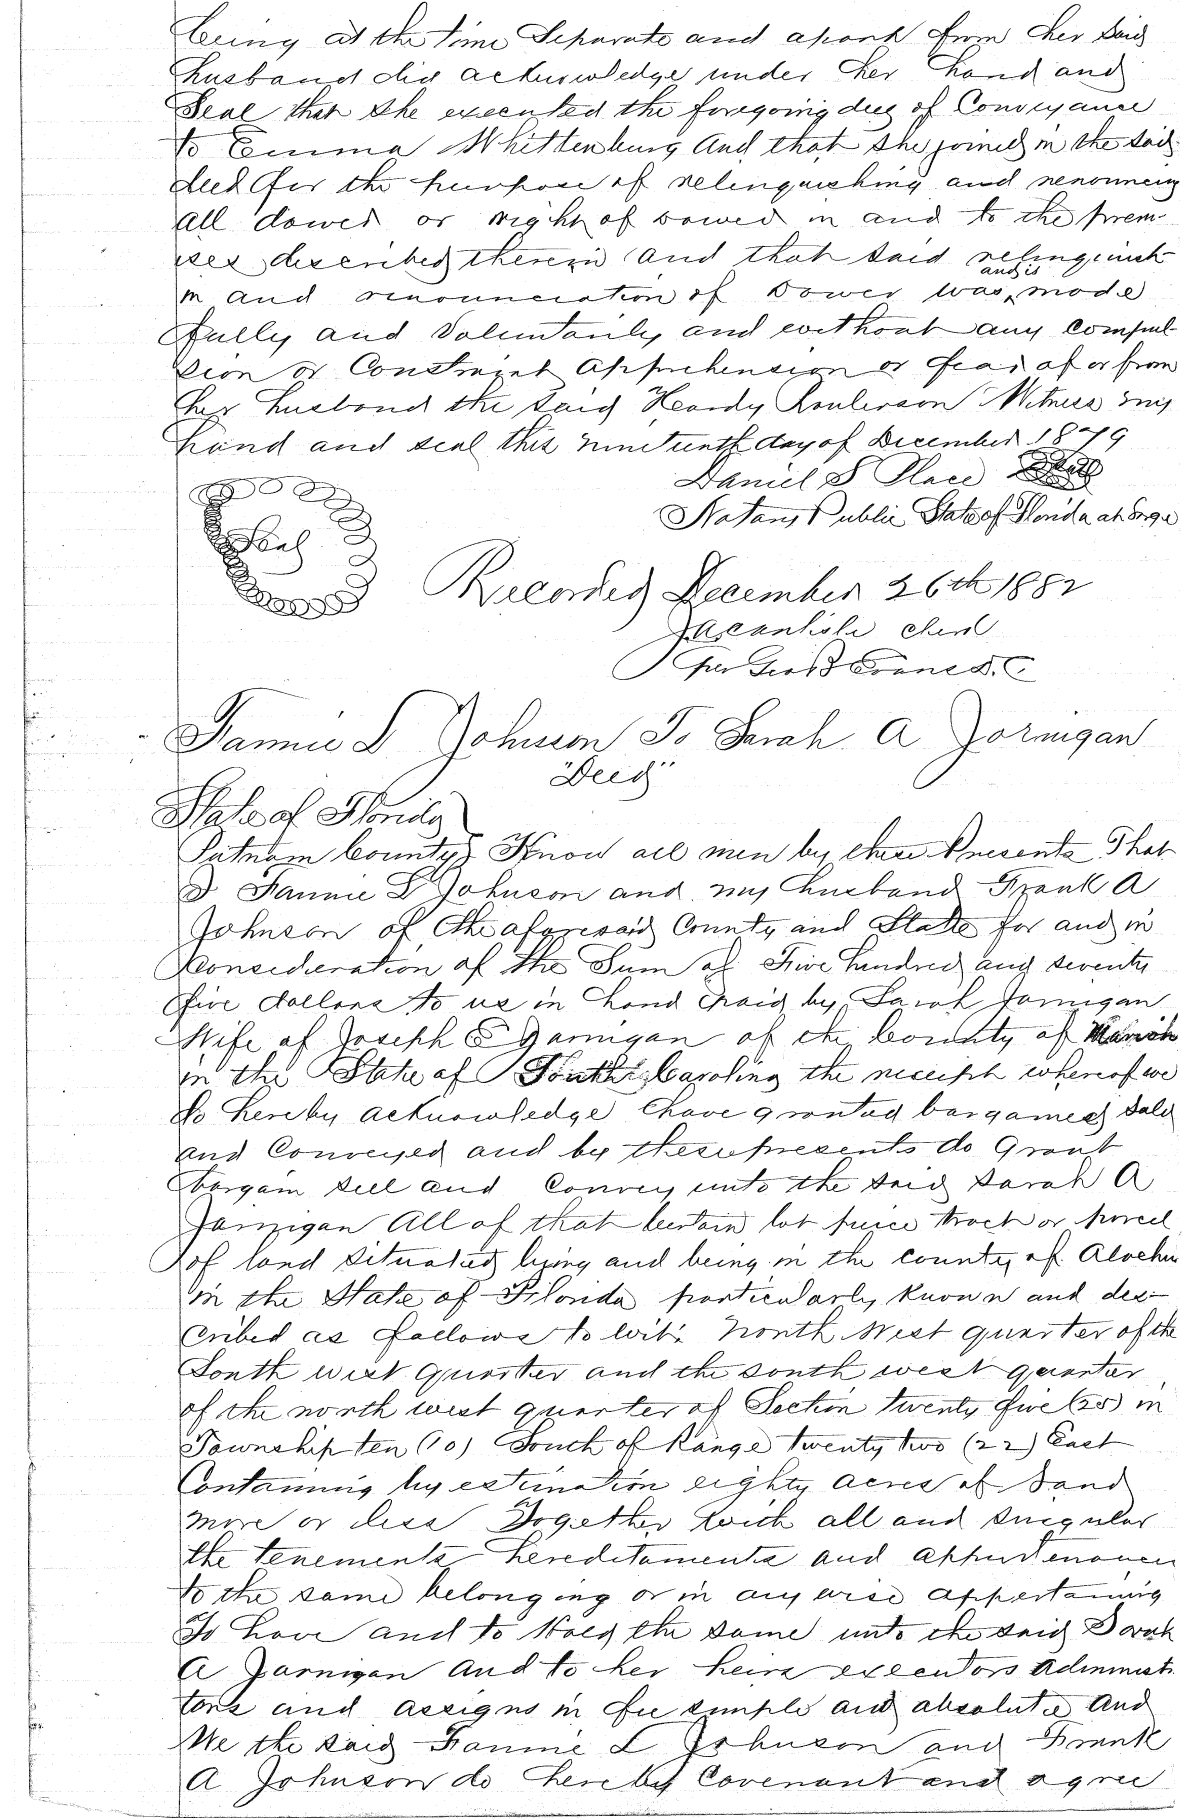 being at the time Separate and apart from her said
husband did acknowledge under her hand and
Seal that she executed the foregoing deed of Conveyance
to Emma Whittenburg And that she joined in the said
deed for the purpose of relinquishing and renouncing
all dower or right of dower in and to the prem-
ises described therein and that said relinquish-
m and renunciation of Dower was and is made
fully and Voluntarily and without any Compul-
sion or Constraint apprehension or fear of or from
her husband the said Heardy Roulerson Witness my
hand and seal this nineteenth day of December 1879
Daniel S Place Seal
Notary Public State of Florida at Large
Seal
Recorded December 26th 1882
clerk
per D.C.
Fannie L Johnson To Sarah A Jarnigan
"Deed"
State of Florida
Putnam County Know all men by these Presents That
I Fannie L Johnson and my husband Frank A
Johnson of the aforesaid County and State for and in
Consideration of the Sum of Five hundred and seventy
five dollars to us in hand paid by Sarah Jarnigan
Wife of Joseph E Jarnigan of the County of Marion
in the State of South Carolina the receipt whereof we
do hereby acknowledge have granted bargained sold
and Conveyed and by these presents do Grant
bargain sell and Convey unto the said Sarah A
Jarnigan All of that certain lot piece tract or parcel
of land situated lying and being in the county of Alachua
in the State of Florida particularly known and des-
cribed as follows to wit: North West quarter of the
South west quarter and the south west quarter
of the north west quarter of Section twenty five (25) in
Township ten (10) South of Range twenty two (22) East
Containing by estimation eighty acres of Land
more or less Together with all and singular
the tenements hereditaments and appurtenances
to the same belonging or in any wise appertaining
To have and to Hold the same unto the said Sarah
A Jarnigan And to her heirs executors Administ
tors and assigns in fee simple and absolute And
We the said Fannie L Johnson and Frank
A Johnson do hereby Covenant and agree